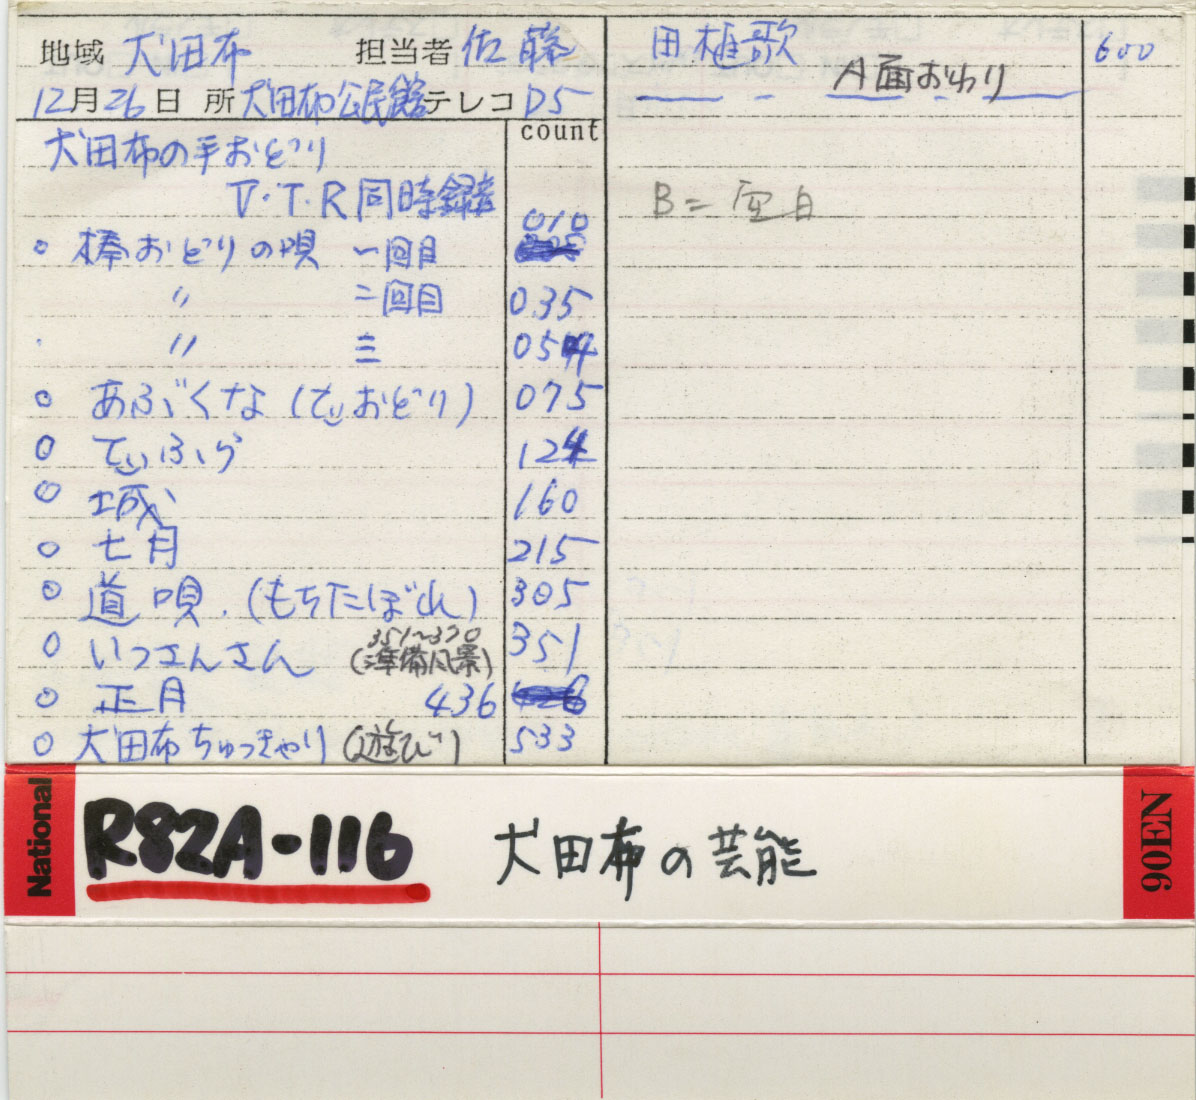 地域 犬田布 担当者 佐藤
12月26日 所 犬田布公民館 テレコ D5
count
犬田布の手おどり
V・T・R同時録音
○ 棒おどりの唄 一回目 010
〃 二回目 035
〃 三 054
○ あぶくな (てぃおどり) 075
○ てぃふら 124
○ 城 160
○ 七月 215
○ 道唄. (もちたぼれ) 305
○ いっさんさん (351~370 準備風景) 351
○ 正月 436
○ 犬田布ちゅっきゃり (遊び) 533
田植歌 600
A面おわり
B=空白
National
R82A-116 犬田布の芸能
90EN